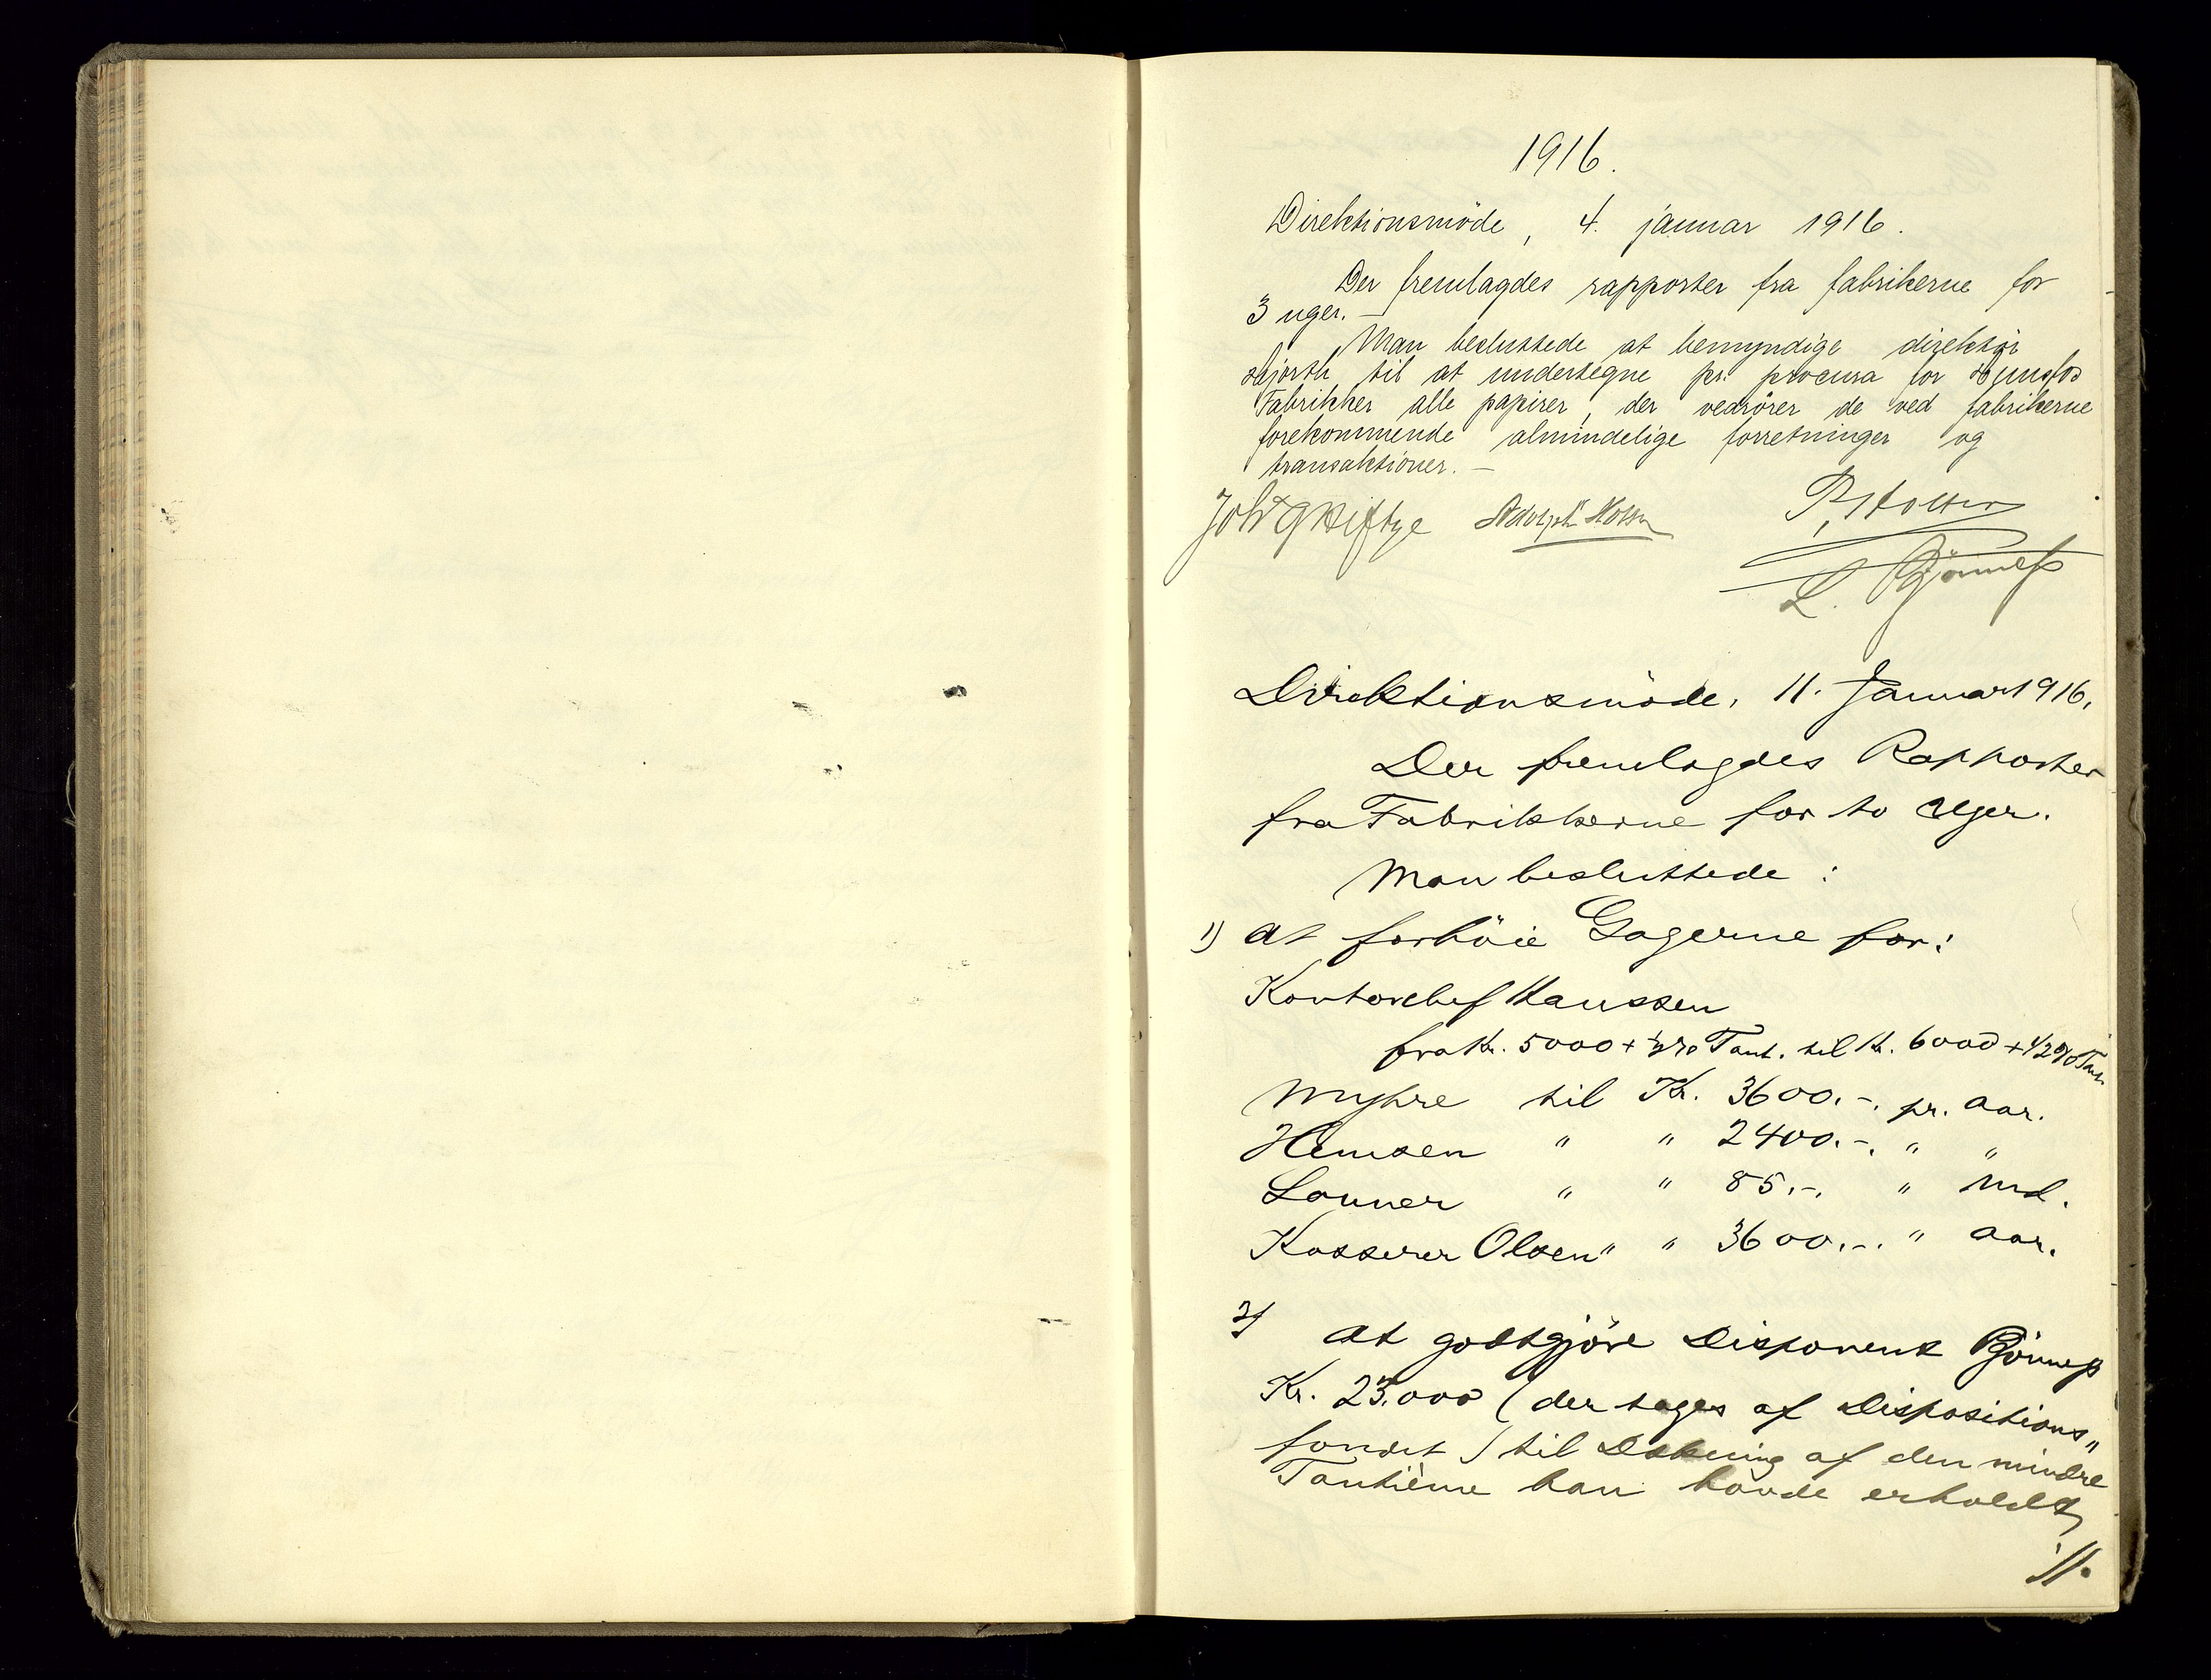 1916.
Direktionsmöde, 4. januar 1916.
Der fremlagdes rapporter fra fabrikerne for
3 uger. —
Man besluttede at bemyndige direktör
Hjorth til at undertegne pr. procura for Hunsfos
Fabrikker alle papirer, der vedrörer de ved fabrikerne
forekommende almindelige forretninger og
transaktioner. —
Joh T G Heftye Adolph
L. Bjönness
Direktionsmöde, 11. Januar 1916.
Der fremlagdes Rapporter
fra Fabrikkerne for to Uger.
Man besluttede :
1) at forhöie Gagerne for:
Kontorchef Hanssen
fra Kr. 5000 + ½ % Tant. til Kr. 6000 + ½ % Tant.
Myhre til Kr. 3600.-. pr. Aar.
Hemsen " " 2400.-. " "
Lanner " " 85.-. " Md.
Kasserer Olsen " " 3600.-. " Aar.
2) at godtgjöre Disponent Bjönness
Kr. 25.000 (der tages af Dispositions„
fondet) til Dekning af den mindre
Tantième han havde erholdt
·//.